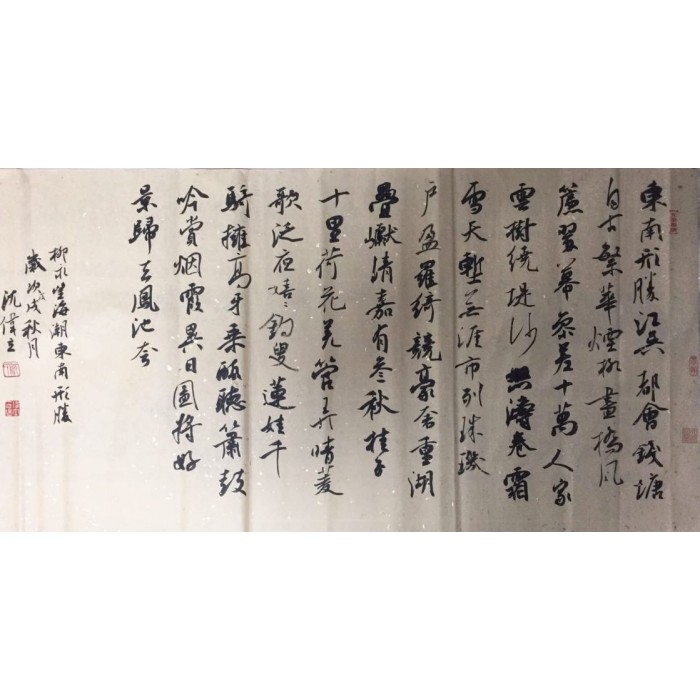 東南形勝江吳都會錢塘
自古繁華煙柳畫橋風
簾翠幕參差十萬人家
雲樹繞堤沙怒濤卷霜
雪天塹無涯市列珠璣
户盈羅綺競豪奢重湖
疊巘清嘉有叁秋桂子
十里荷花羌管弄晴菱
歌泛夜嬉〻釣叟蓮娃千
騎擁高牙乘醉聽簫鼓
吟賞烟霞異日圖將好
景歸去鳳池夸
柳永望海潮東南形勝
歲次戊戌秋月
沈偉立